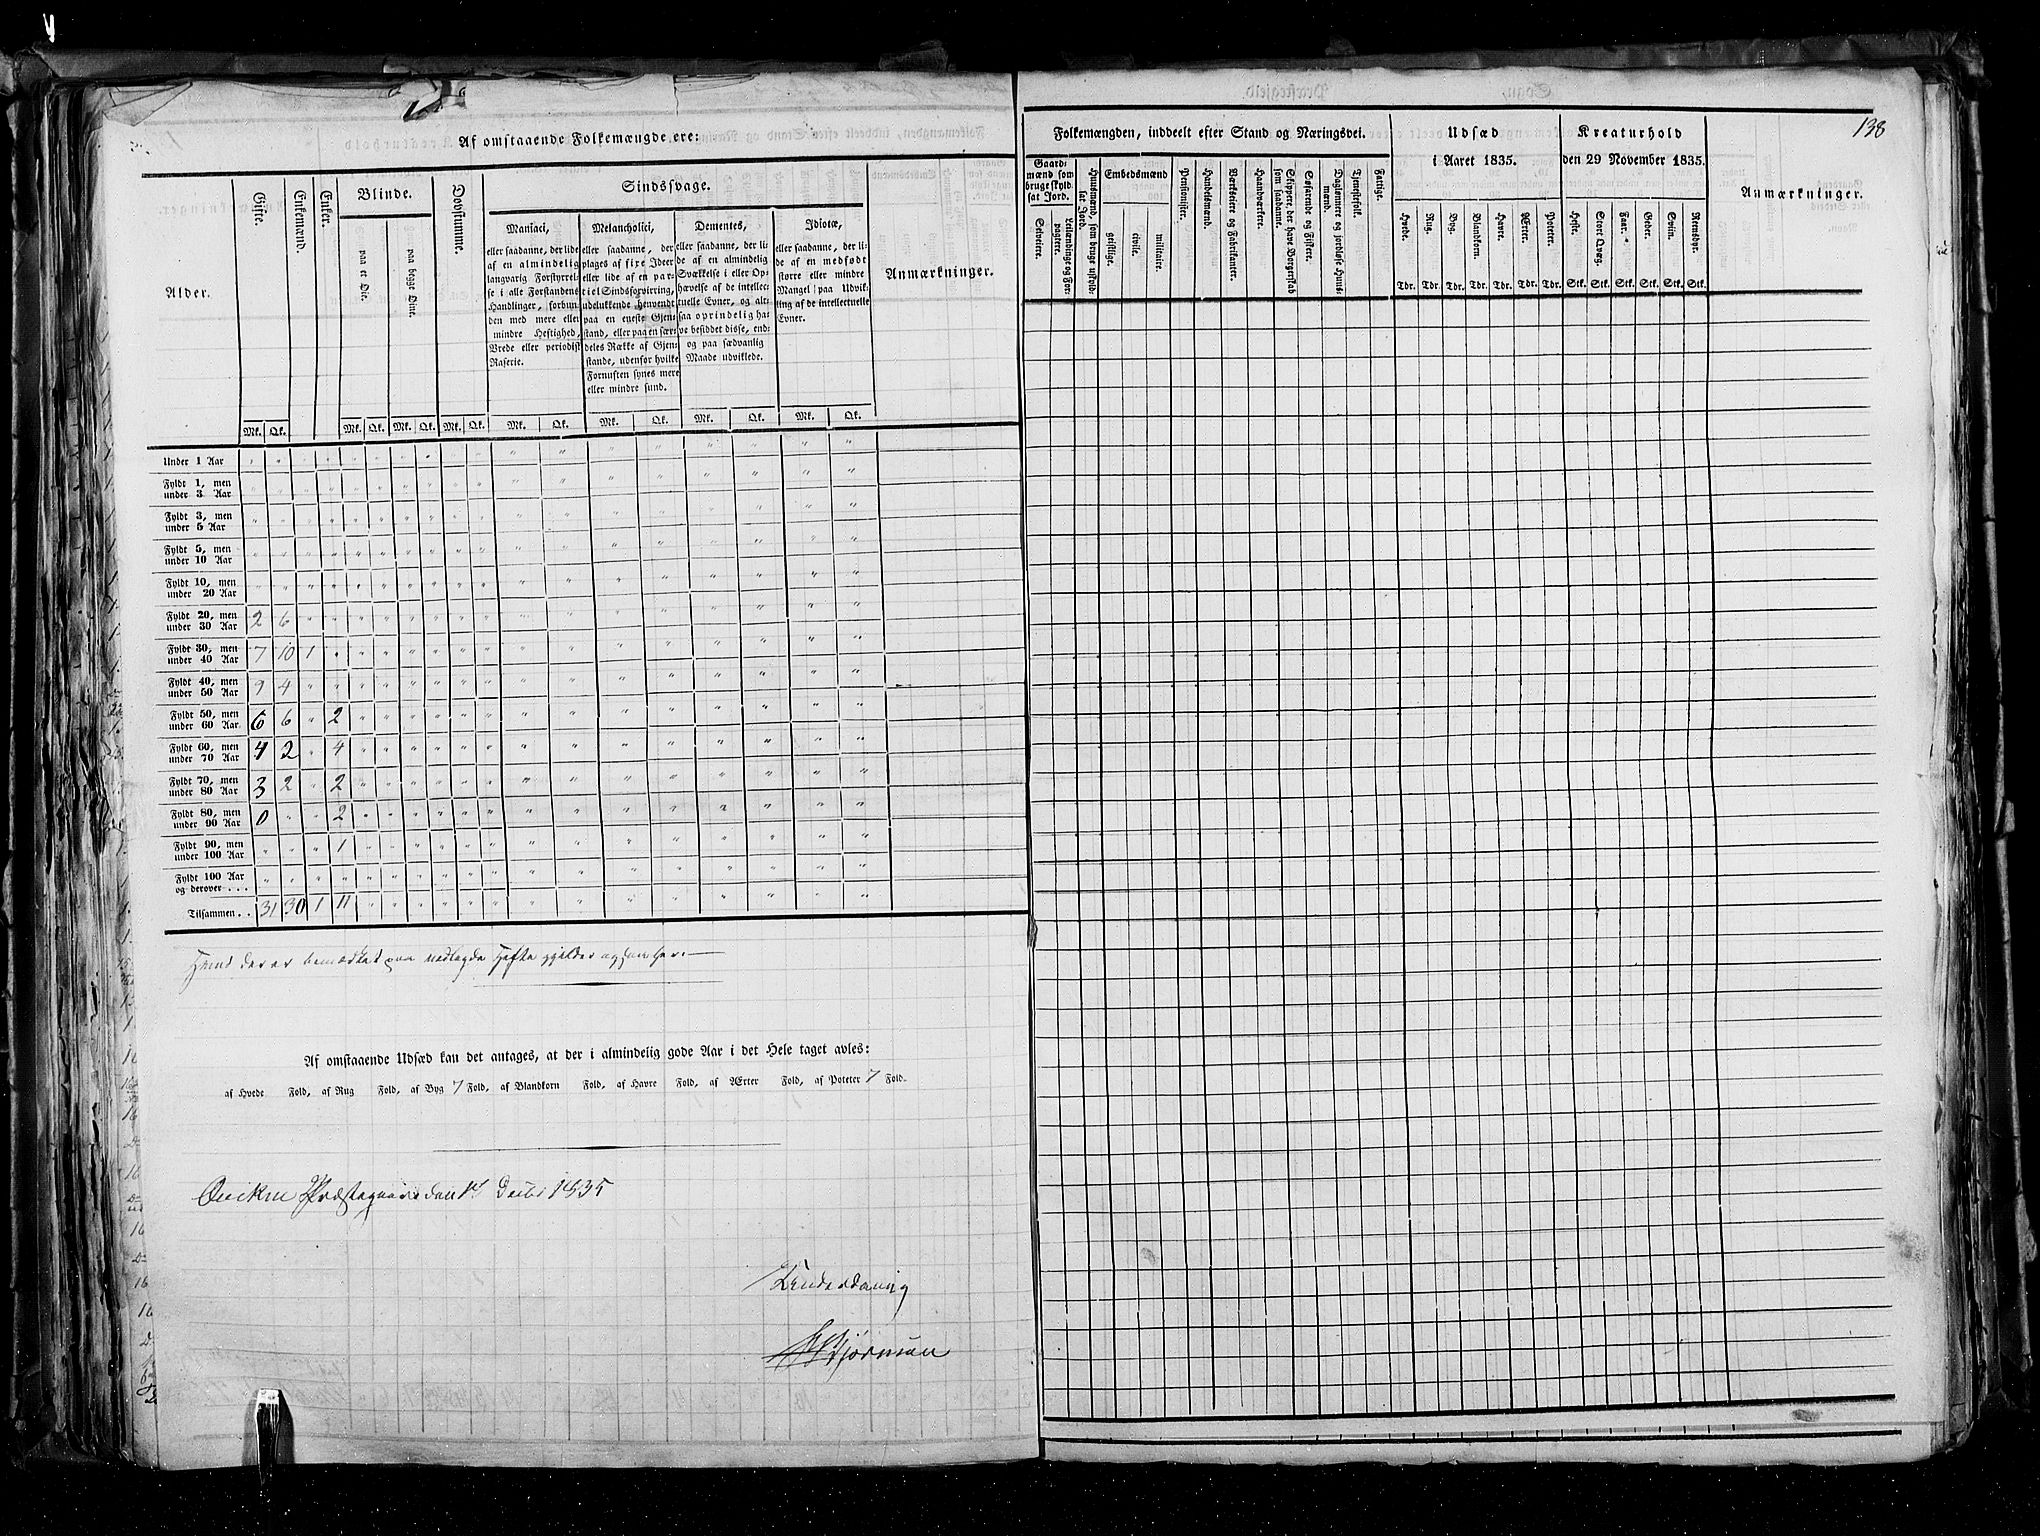 Af omstaaende Folkemængde ere:
Alder.
Gifte.
Enkemænd.
Enker.
Blinde.
paa et Øie.
paa begge Øine.
Døvstumme.
Sindssvage.
Maniaci,
eller saadanne, der lide
af en almindelig
langvarig Forstyrrel-
se i alle Forstandens
Handlinger, forbun-
den med mere eller
mindre Heftighed,
Vrede eller periodisk
Raserie.
Melancholici,
eller saadanne, der
plages af fixe Ideer
eller lide af en par-
tiel Sindsforvirring,
udelukkende henvendt
paa en eneste Gjen-
stand, eller paa en sær-
deles Række af Gjen-
stande, udenfor hvilke
Fornuften synes mere
eller mindre sund.
Dementes,
eller saadanne, der li-
de af en almindelig
Svækkelse i eller Op-
hævelse af de intellec-
tuelle Evner, og alt-
saa oprindelig ha-
ve besiddet disse, end-
og paa sædvanlig
Maade udviklede.
Idiotæ,
eller saadanne, der li-
de af en medfødt
større eller mindre
Mangel paa Udvik-
ling af de intellectuelle
Evner.
Anmærkninger.
Mk. Qk. Mk. Qk. Mk. Qk. Mk. Qk. Mk. Qk. Mk. Qk. Mk. Qk. Mk. Qk.
Under 1 Aar
Fyldt 1, men
under 3 Aar
Fyldt 3, men
under 5 Aar
Fyldt 5, men
under 10 Aar
Fyldt 10, men
under 20 Aar
Fyldt 20, men
under 30 Aar 2 6
Fyldt 30, men
under 40 Aar 7 10 1
Fyldt 40, men
under 50 Aar 9 4
Fyldt 50, men
under 60 Aar 6 6 " 2
Fyldt 60, men
under 70 Aar 4 2 " 4
Fyldt 70, men
under 80 Aar 3 2 " 2
Fyldt 80, men
under 90 Aar 0 " " 2
Fyldt 90, men
under 100 Aar " " " 1
Fyldt 100 Aar
og derover . . .
Tilsammen . . 31 30 1 11
der er bemærket paa nedlagde Hefte gjelder ogsaa her.
Af omstaaende Udsæd kan det antages, at der i almindelig gode Aar i det Hele taget avles:
af Hvede Fold, af Rug Fold, af Byg 7 Fold, af Blandkorn Fold, af Havre Fold, af Ærter Fold, af Poteter 7 Fold.
Præstegaard den 1835
Bjørnson
138
Folkemængden, inddeelt efter Stand og Næringsvei.
Gaard-
mænd som
bruge skyld-
sat Jord.
Selveiere.
Leilændinge og For-
pagtere.
Huusmænd, som bruge uskyld-
sat Jord.
Embedsmænd
geistlige.
civile.
militaire.
Pensionister.
Handelsmænd.
Værkseiere og Fabrikanter.
Haandværkere.
Skippere, der have Borgerskab
som saadanne.
Søfarende og Fiskere.
Daglønnere og jordløse Huus-
mænd.
Tjenestefolk.
Fattige.
Udsæd
i Aaret 1835.
Hvede. Rug. Byg. Blandkorn. Havre. Ærter. Poteter.
Tdr. Tdr. Tdr. Tdr. Tdr. Tdr. Tdr.
Kreaturhold
den 29 November 1835.
Heste. Stort Qvæg. Faar. Geder. Sviin. Rensdyr.
Stk. Stk. Stk. Stk. Stk. Stk.
Anmærkninger.